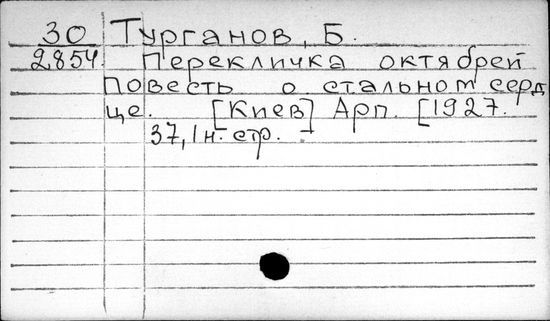 30 Турганов, Б.
2854 Перекличка октябрей
Повесть о стальном серд
це. [Киев] Арп. [1927.
37, 1 н. стр. ]